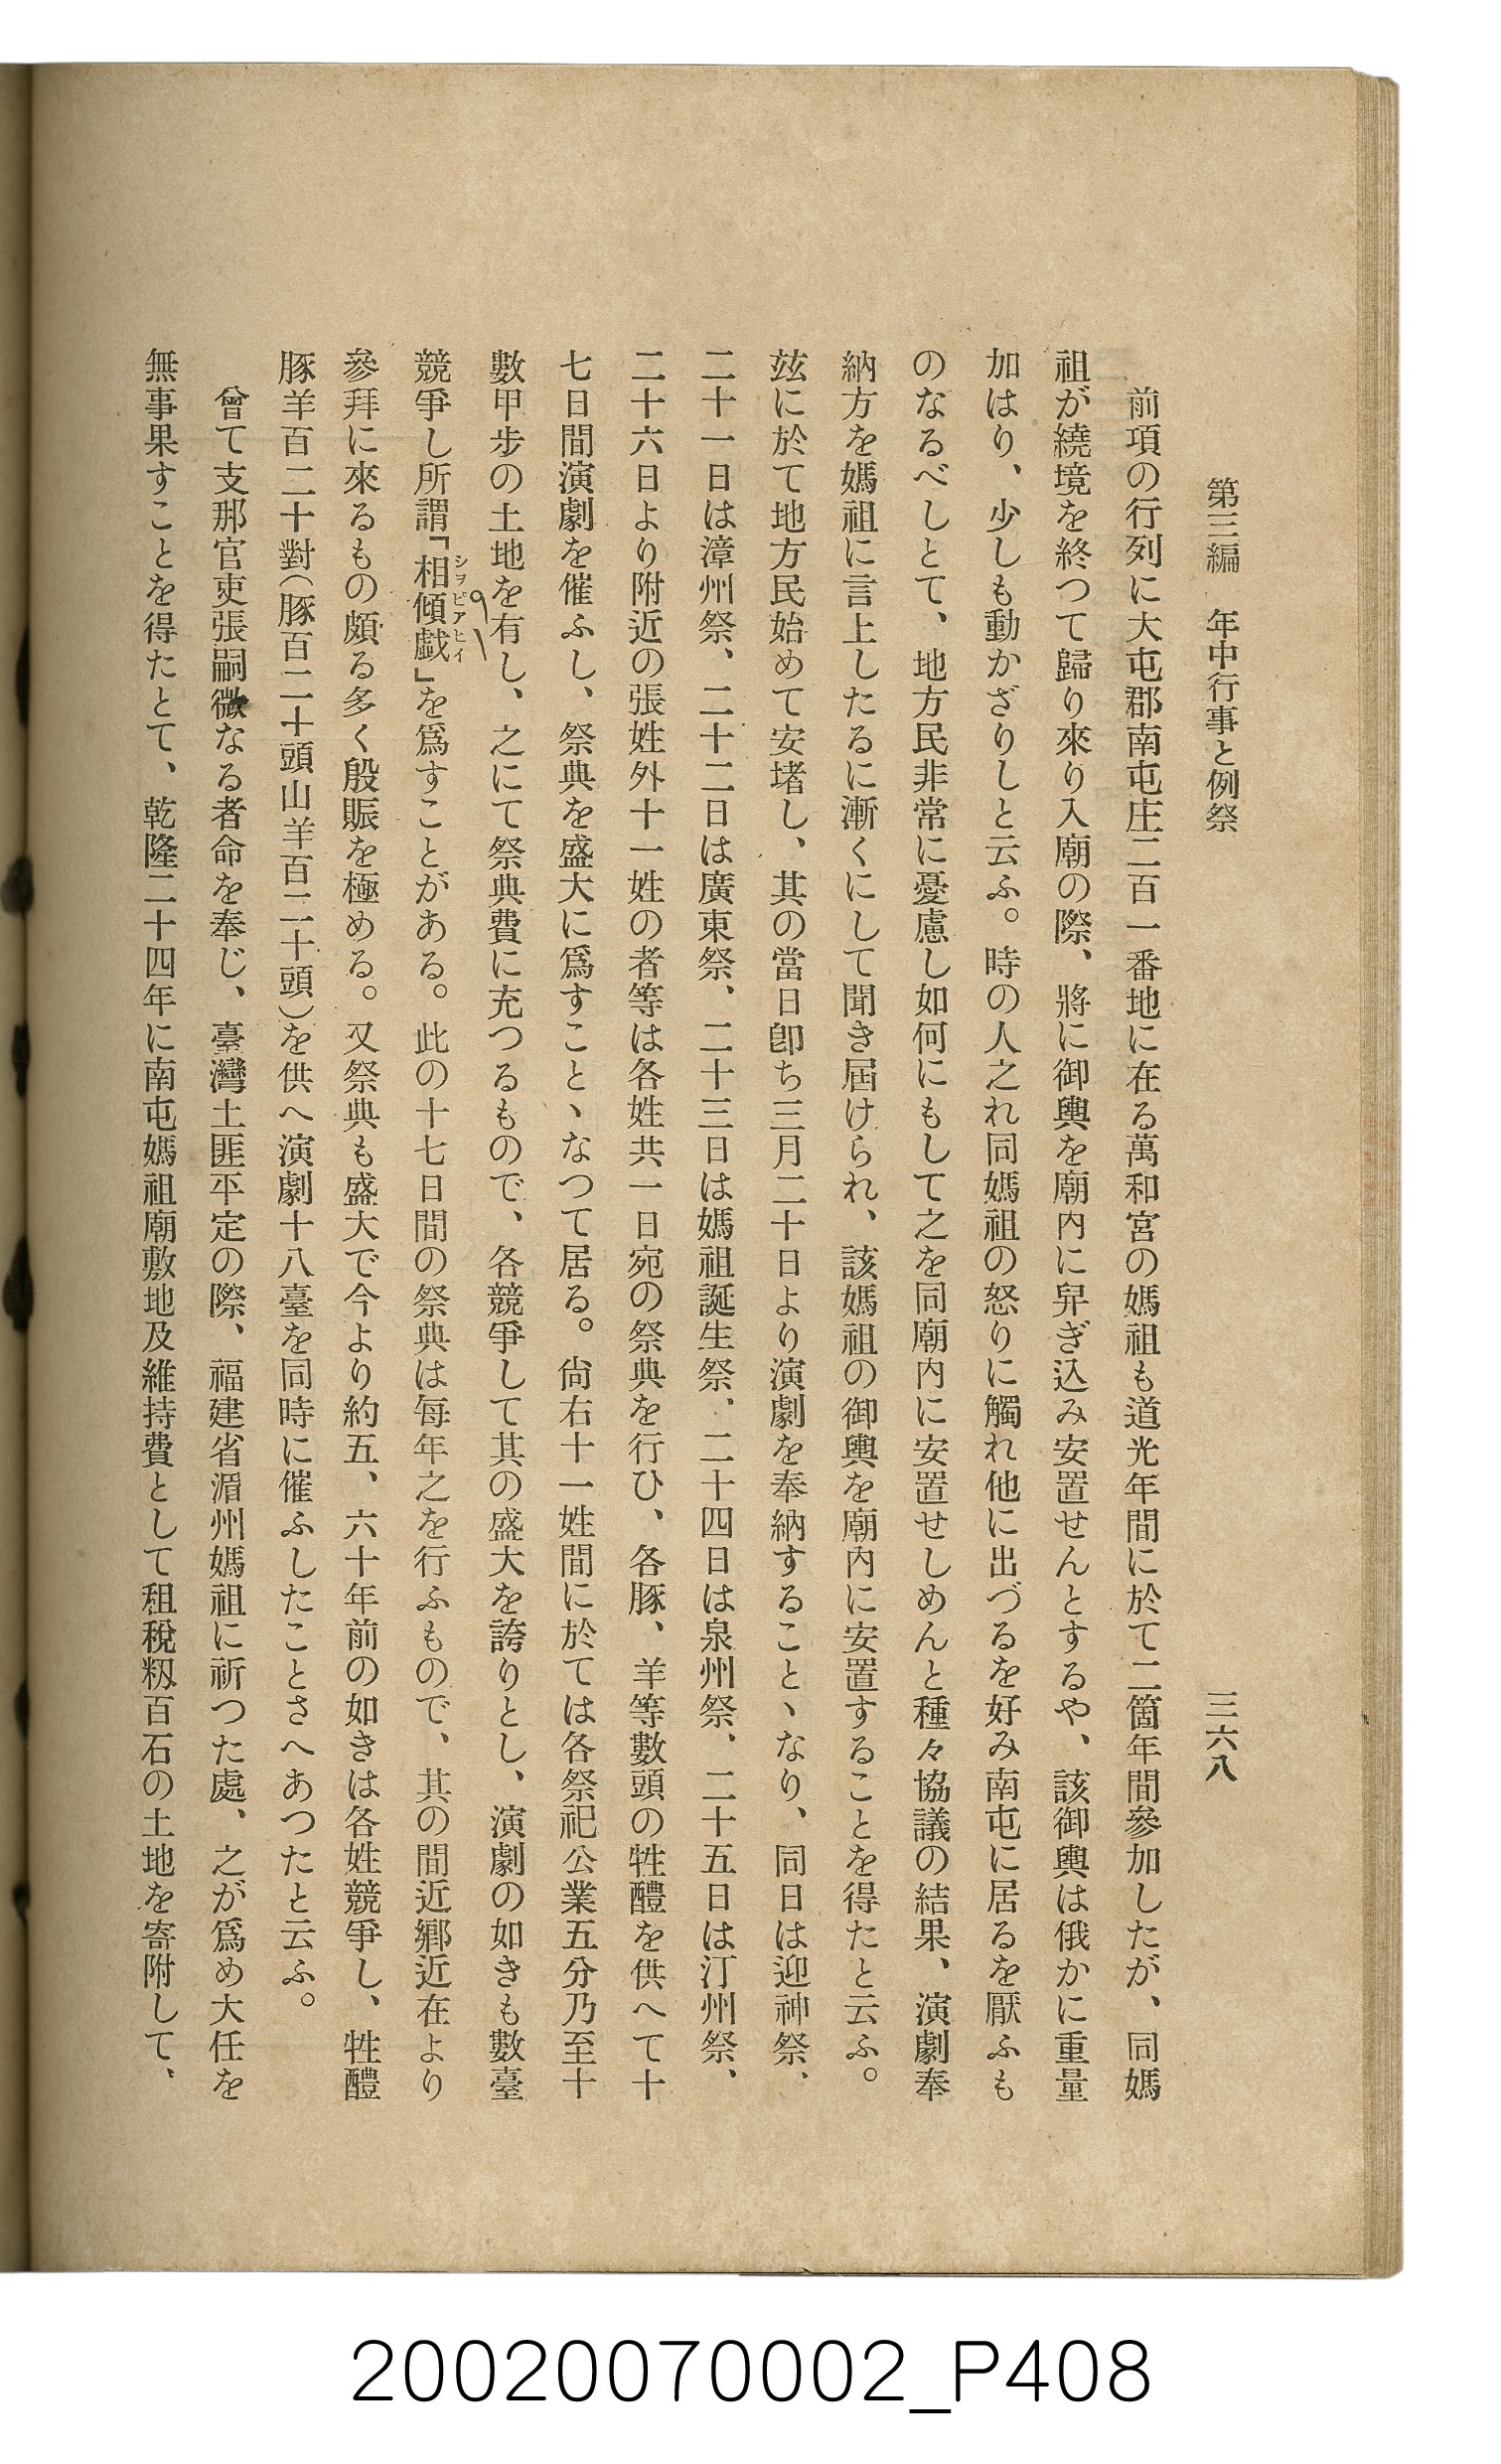 第三編　年中行事と例祭　三六八
前項の行列に大屯郡南屯庄二百一番地に在る萬和宮の媽祖も道光年間に於て二箇年間參加したが、同媽
祖が繞境を終つて歸り來り入廟の際、將に御輿を廟內に舁ぎ込み安置せんとするや、該御輿は俄かに重量
加はり、少しも動かざりしと云ふ。時の人之れ同媽祖の怒りに觸れ他に出づるを好み南屯に居るを厭ふも
のなるべしとて、地方民非常に憂慮し如何にもして之を同廟內に安置せしめんと種々協議の結果、演劇奉
納方を媽祖に言上したるに漸くにして聞き屆けられ、該媽祖の御輿を廟內に安置することを得たと云ふ。
玆に於て地方民始めて安堵し、其の當日卽ち三月二十日より演劇を奉納することヽなり、同日は迎神祭、
二十一日は漳州祭、二十二日は廣東祭、二十三日は媽祖誕生祭、二十四日は泉州祭、二十五日は汀州祭、
二十六日より附近の張姓外十一姓の者等は各姓共一日宛の祭典を行ひ、各豚、羊等數頭の牲醴を供へて十
七日間演劇を催ふし、祭典を盛大に爲すことヽなつて居る。尙右十一姓間に於ては各祭祀公業五分乃至十
數甲步の土地を有し、之にて祭典費に充つるもので、各競爭して其の盛大を誇りとし、演劇の如きも數臺
競爭し所謂「相傾戯」を爲すことがある。此の十七日間の祭典は每年之を行ふもので、其の間近鄕近在より
シヲピアヒイ
參拜に來るもの頗る多く殷賑を極める。又祭典も盛大で今より約五、六十年前の如きは各姓競爭し、牲醴
豚羊百二十對(豚百二十頭山羊百二十頭)を供へ演劇十八臺を同時に催ふしたことさへあつたと云ふ。
曾て支那官吏張嗣徽なる者命を奉じ、臺灣土匪平定の際、福建省湄州媽祖に祈つた處、之が爲め大任を
無事果すことを得たとて、乾隆二十四年に南屯媽祖廟敷地及維持費として租稅籾百石の土地を寄附して、
20020070002_P408